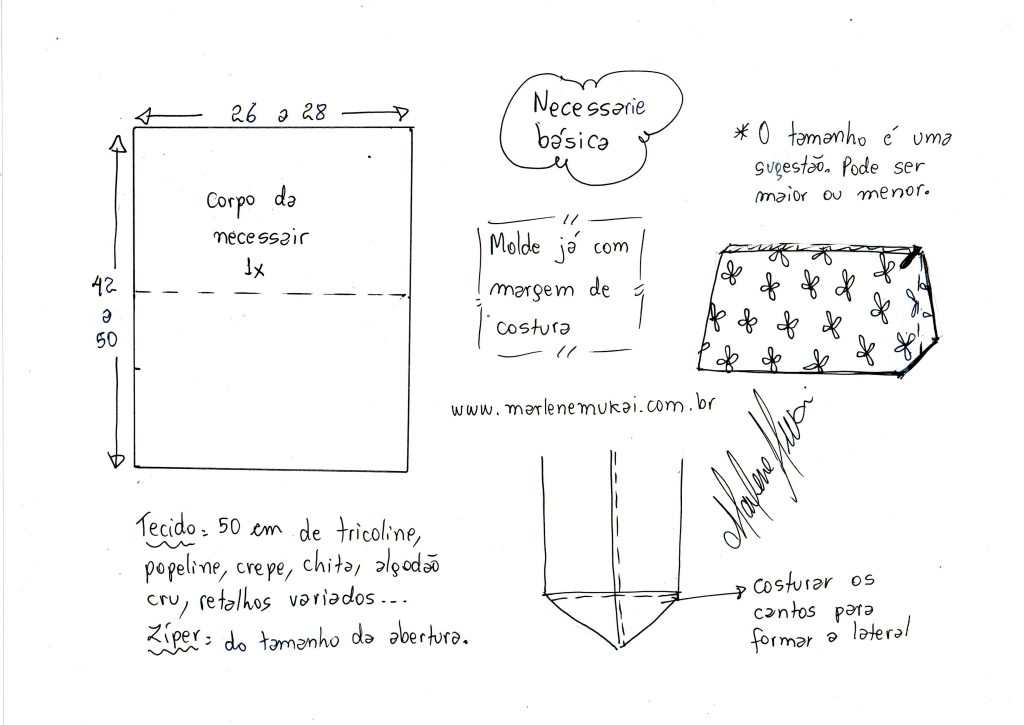 26 a 28
42
a
50
Corpo da
necessair
1x
Necessarie
básica
Molde já com
margem de
costura
* O tamanho é uma
sugestão. Pode ser
maior ou menor.
www.marlenemukai.com.br
Marlene Mukai
Tecido = 50 cm de tricoline,
popeline, crepe, chita, algodão
cru, retalhos variados...
Zíper = do tamanho da abertura.
costurar os
cantos para
formar a lateral